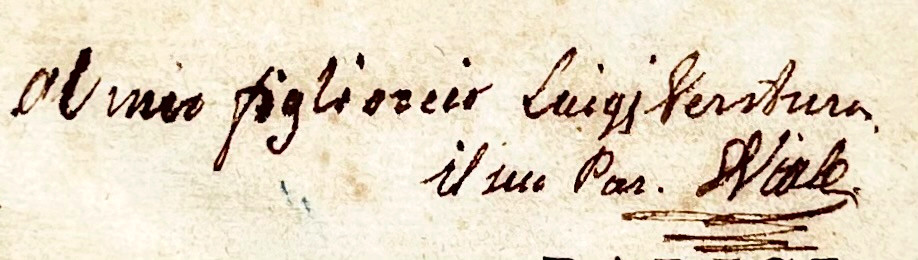 Al mio figlioccio Luigi Ventura
il suo Par. Viale